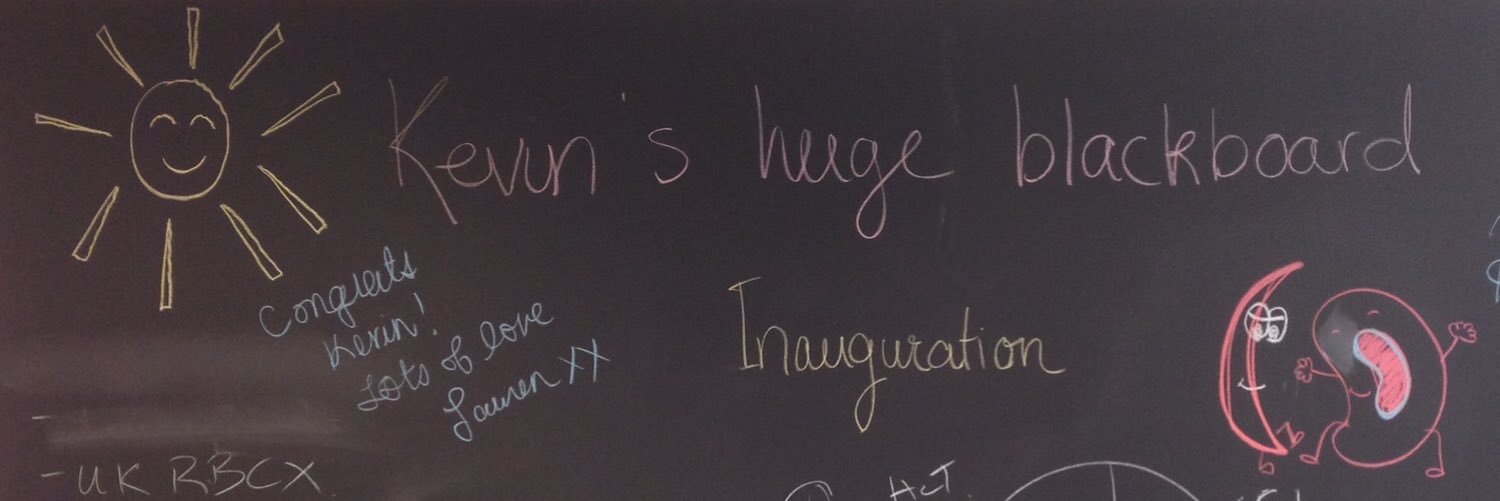 Kevin's huge blackboard
Inauguration
Congrats
Kevin!
Lots of love
Lauren XX
- UK RBCX
HCT